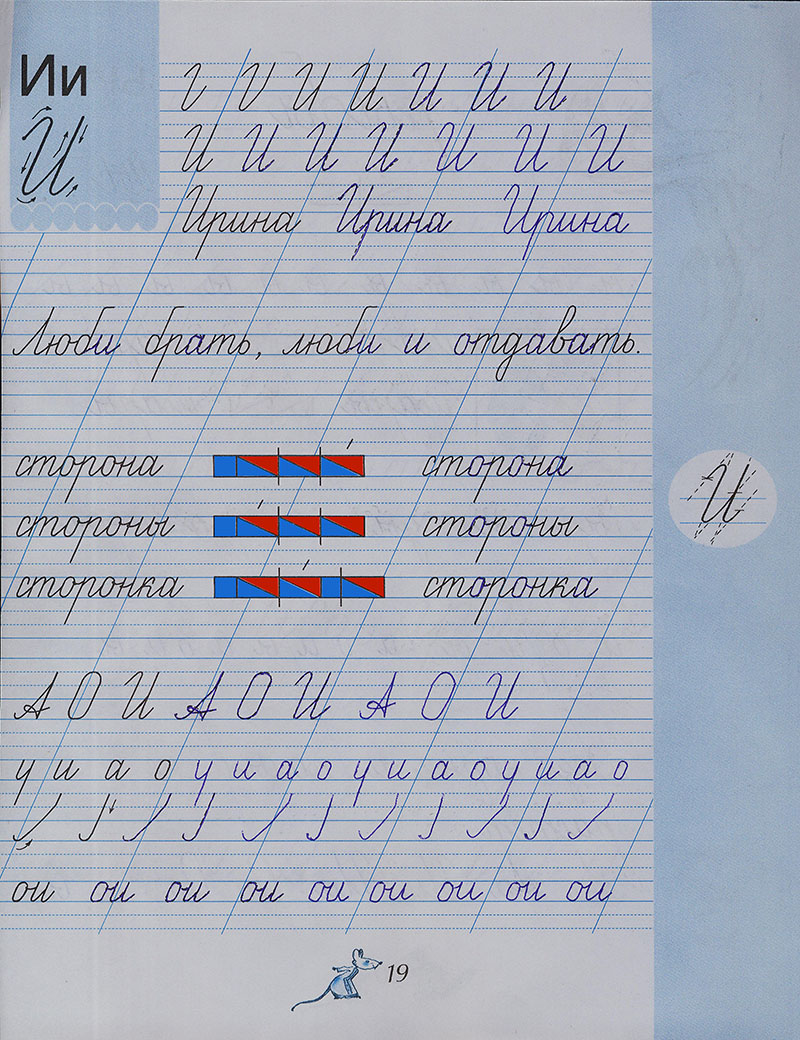 Ии
И
И И И И И И
И И И И И И И
Ирина Ирина Ирина
Люби брать, люби и отдавать.
сторона сторона
стороны стороны
сторонка сторонка
И
А О И А О И А О И
у и а о у и а о у и а о у и а о
ои ои ои ои ои ои ои ои ои
19